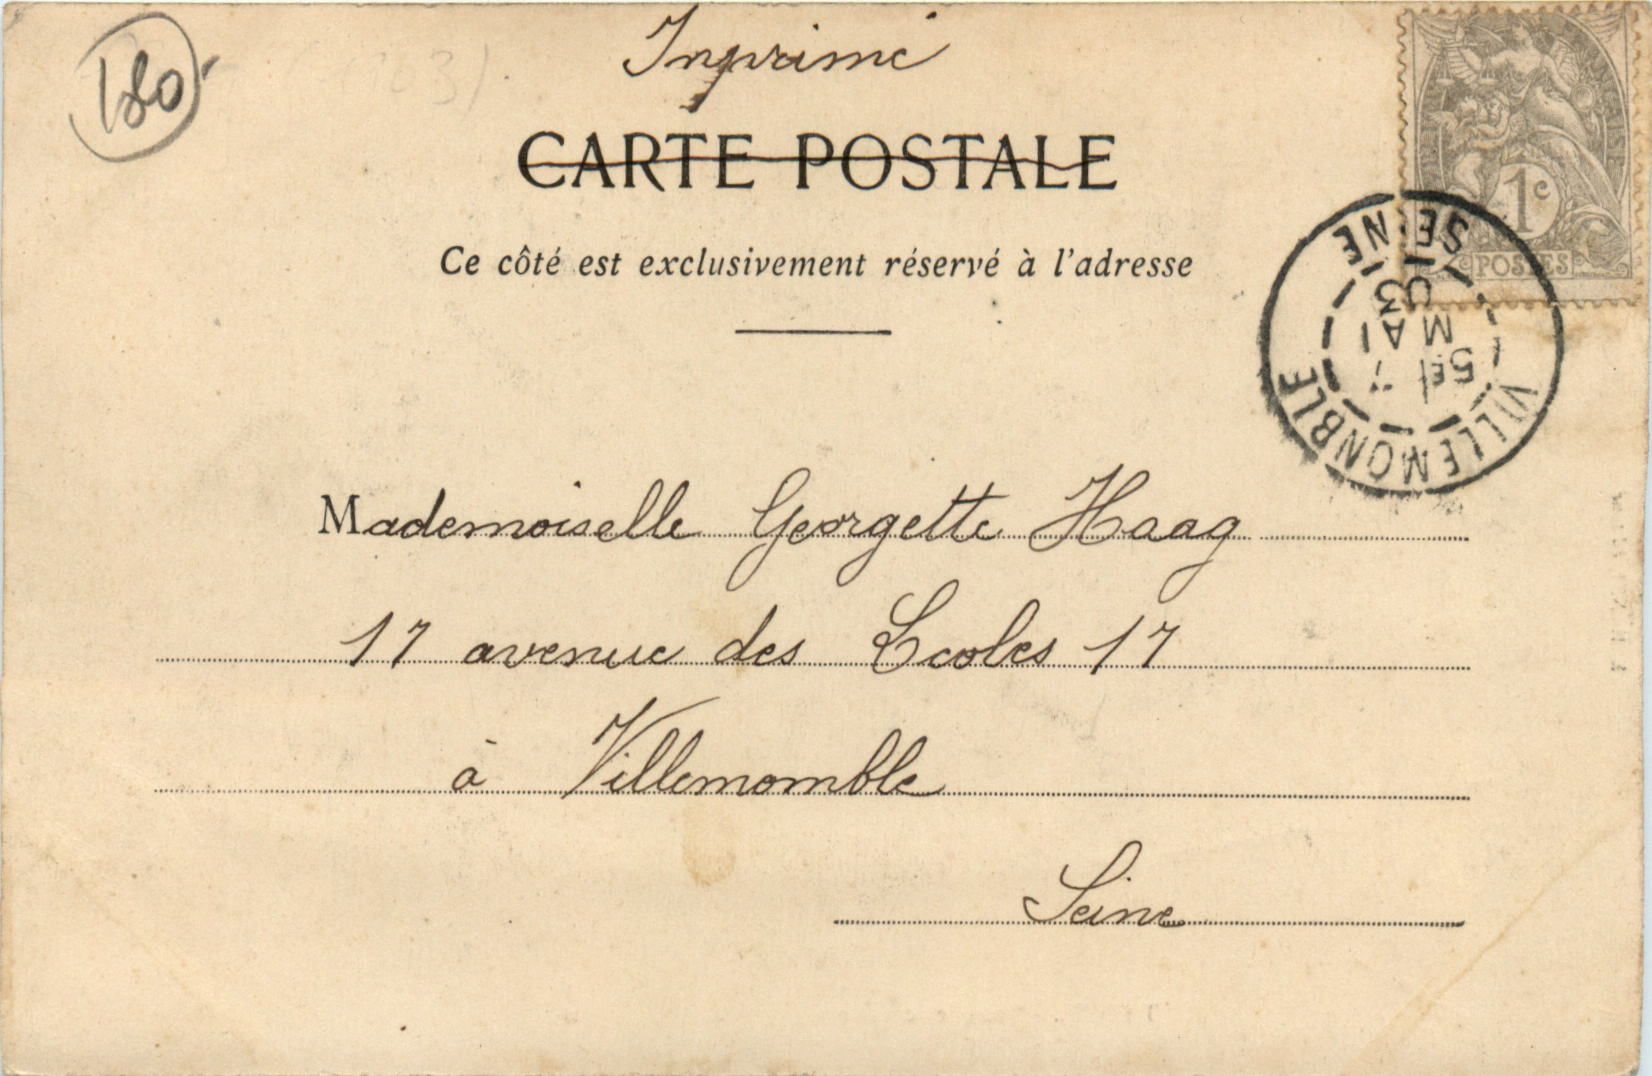 180
Imprimé
CARTE POSTALE
Ce côté est exclusivement réservé à l'adresse
1c
POSTES
SEINE
03
MAI
7
5E
VILLEMONBLE
Mademoiselle Georgette Haag
17 avenue des Ecoles 17
à Villemomble
Seine